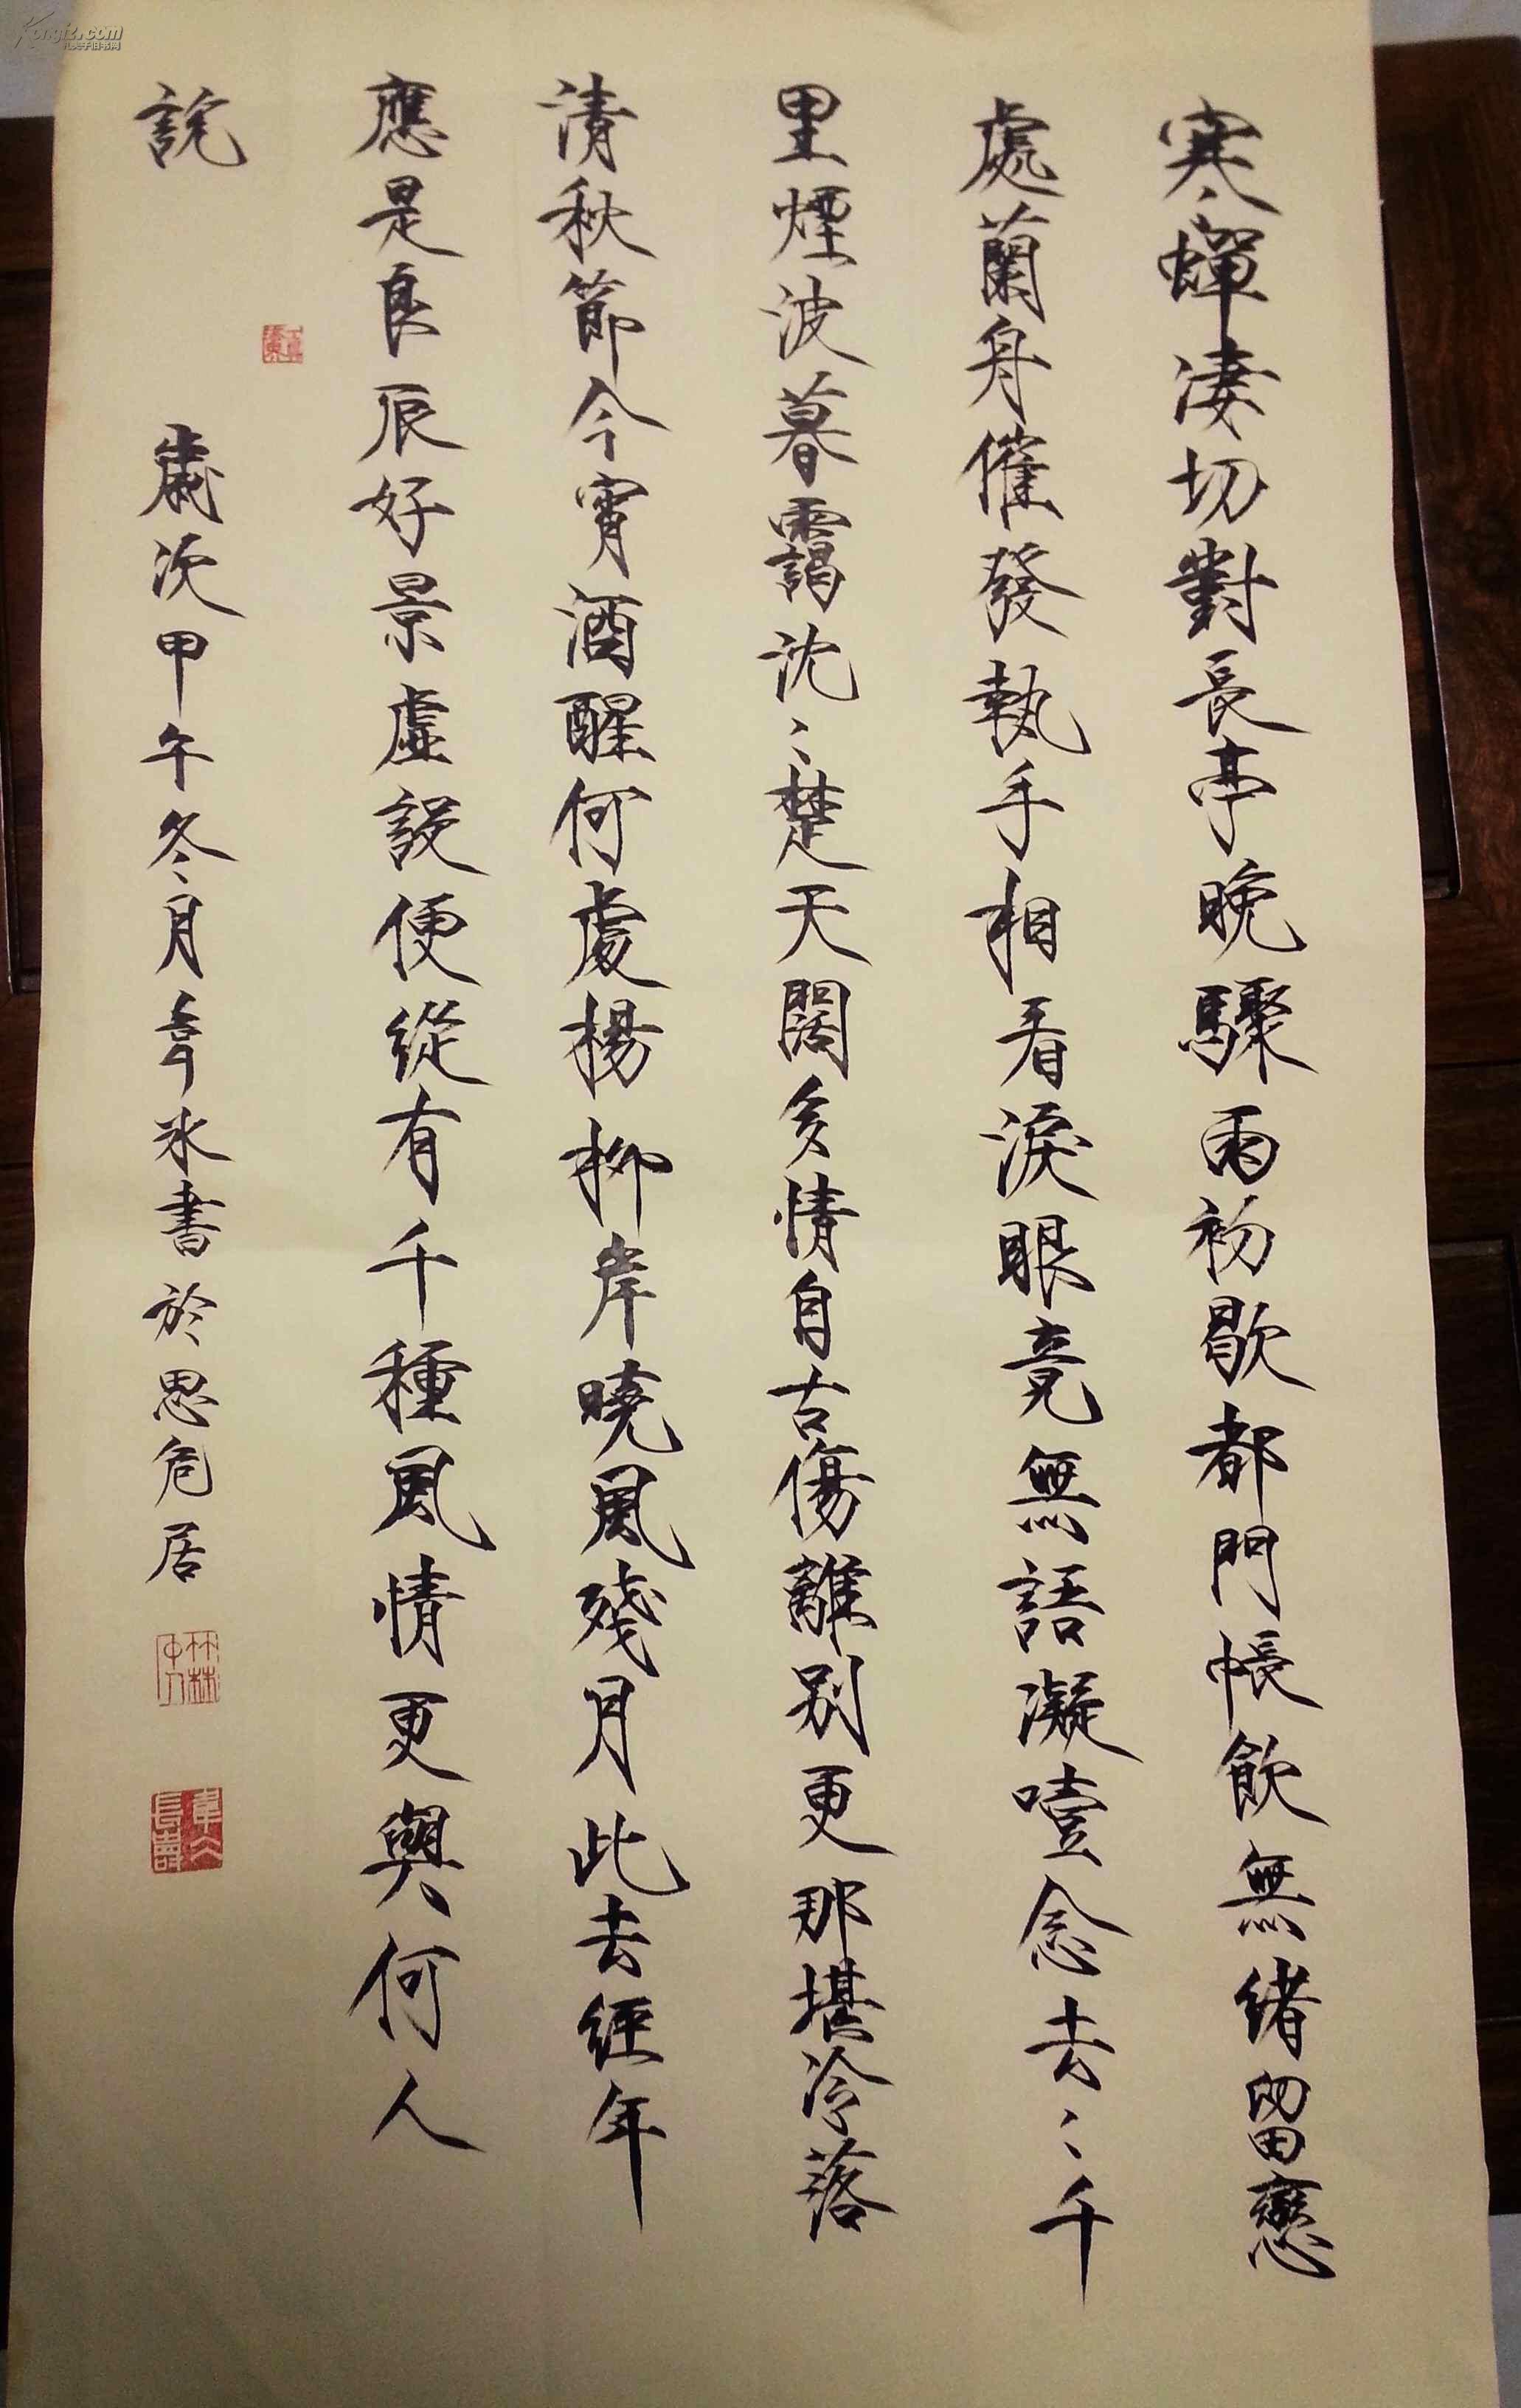 寒蟬淒切對長亭晚驟雨初歇都門帳飲無緒留戀
處蘭舟催發執手相看淚眼竟無語凝噎念去〻千
里煙波暮靄沈〻楚天闊多情自古傷離別更那堪冷落
清秋節今宵酒醒何處楊柳岸曉風殘月此去經年
應是良辰好景虛設便從有千種風情更與何人
說
歲次甲午冬月韋冰書於思危居
Kongfz.com
孔夫子旧书网